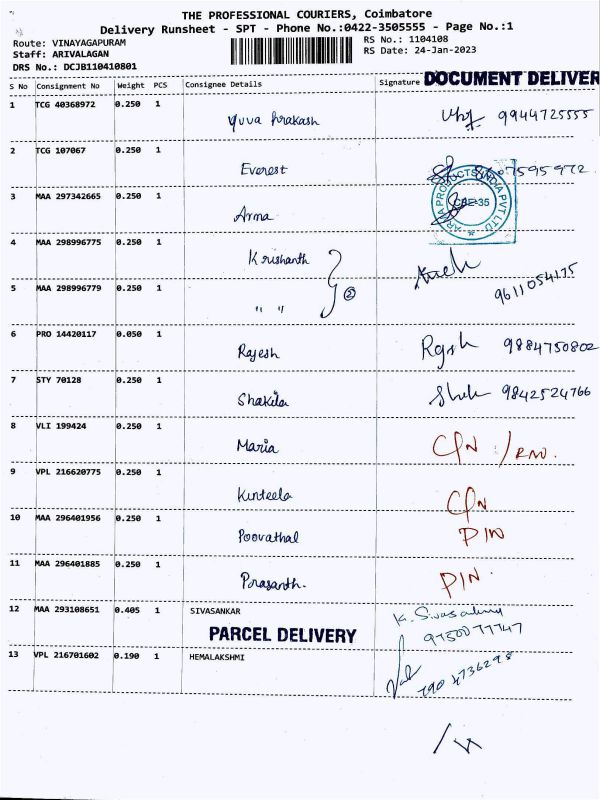 THE PROFESSIONAL COURIERS, Coimbatore
Delivery Runsheet - SPT - Phone No.:0422-3505555 - Page No.:1
Route: VINAYAGAPURAM
RS No.: 1104108
Staff: ARIVALAGAN
RS Date: 24-Jan-2023
DRS No.: DCJB110410801
S No Consignment No Weight PCS Consignee Details Signature DOCUMENT DELIVER
1 TCG 40368972 0.250 1 Yuva Prakash 9944725555
2 TCG 107067 0.250 1 Everest 7595972
ARMA PRODUCTS INDIA PVT LTD
CBE-35
3 MAA 297342665 0.250 1 Arma
4 MAA 298996775 0.250 1 Krishanth
5 MAA 298996779 0.250 1 " " 2 9611054175
6 PRO 14420117 0.050 1 Rajesh 9884750802
7 STY 70128 0.250 1 Shakila 9842524766
8 VLI 199424 0.250 1 Maria
9 VPL 216620775 0.250 1 Kinteela
10 MAA 296401956 0.250 1 Poovathal PIN
11 MAA 296401885 0.250 1 Prasanth. PIN.
12 MAA 293108651 0.405 1 SIVASANKAR
PARCEL DELIVERY
13 VPL 216701602 0.190 1 HEMALAKSHMI